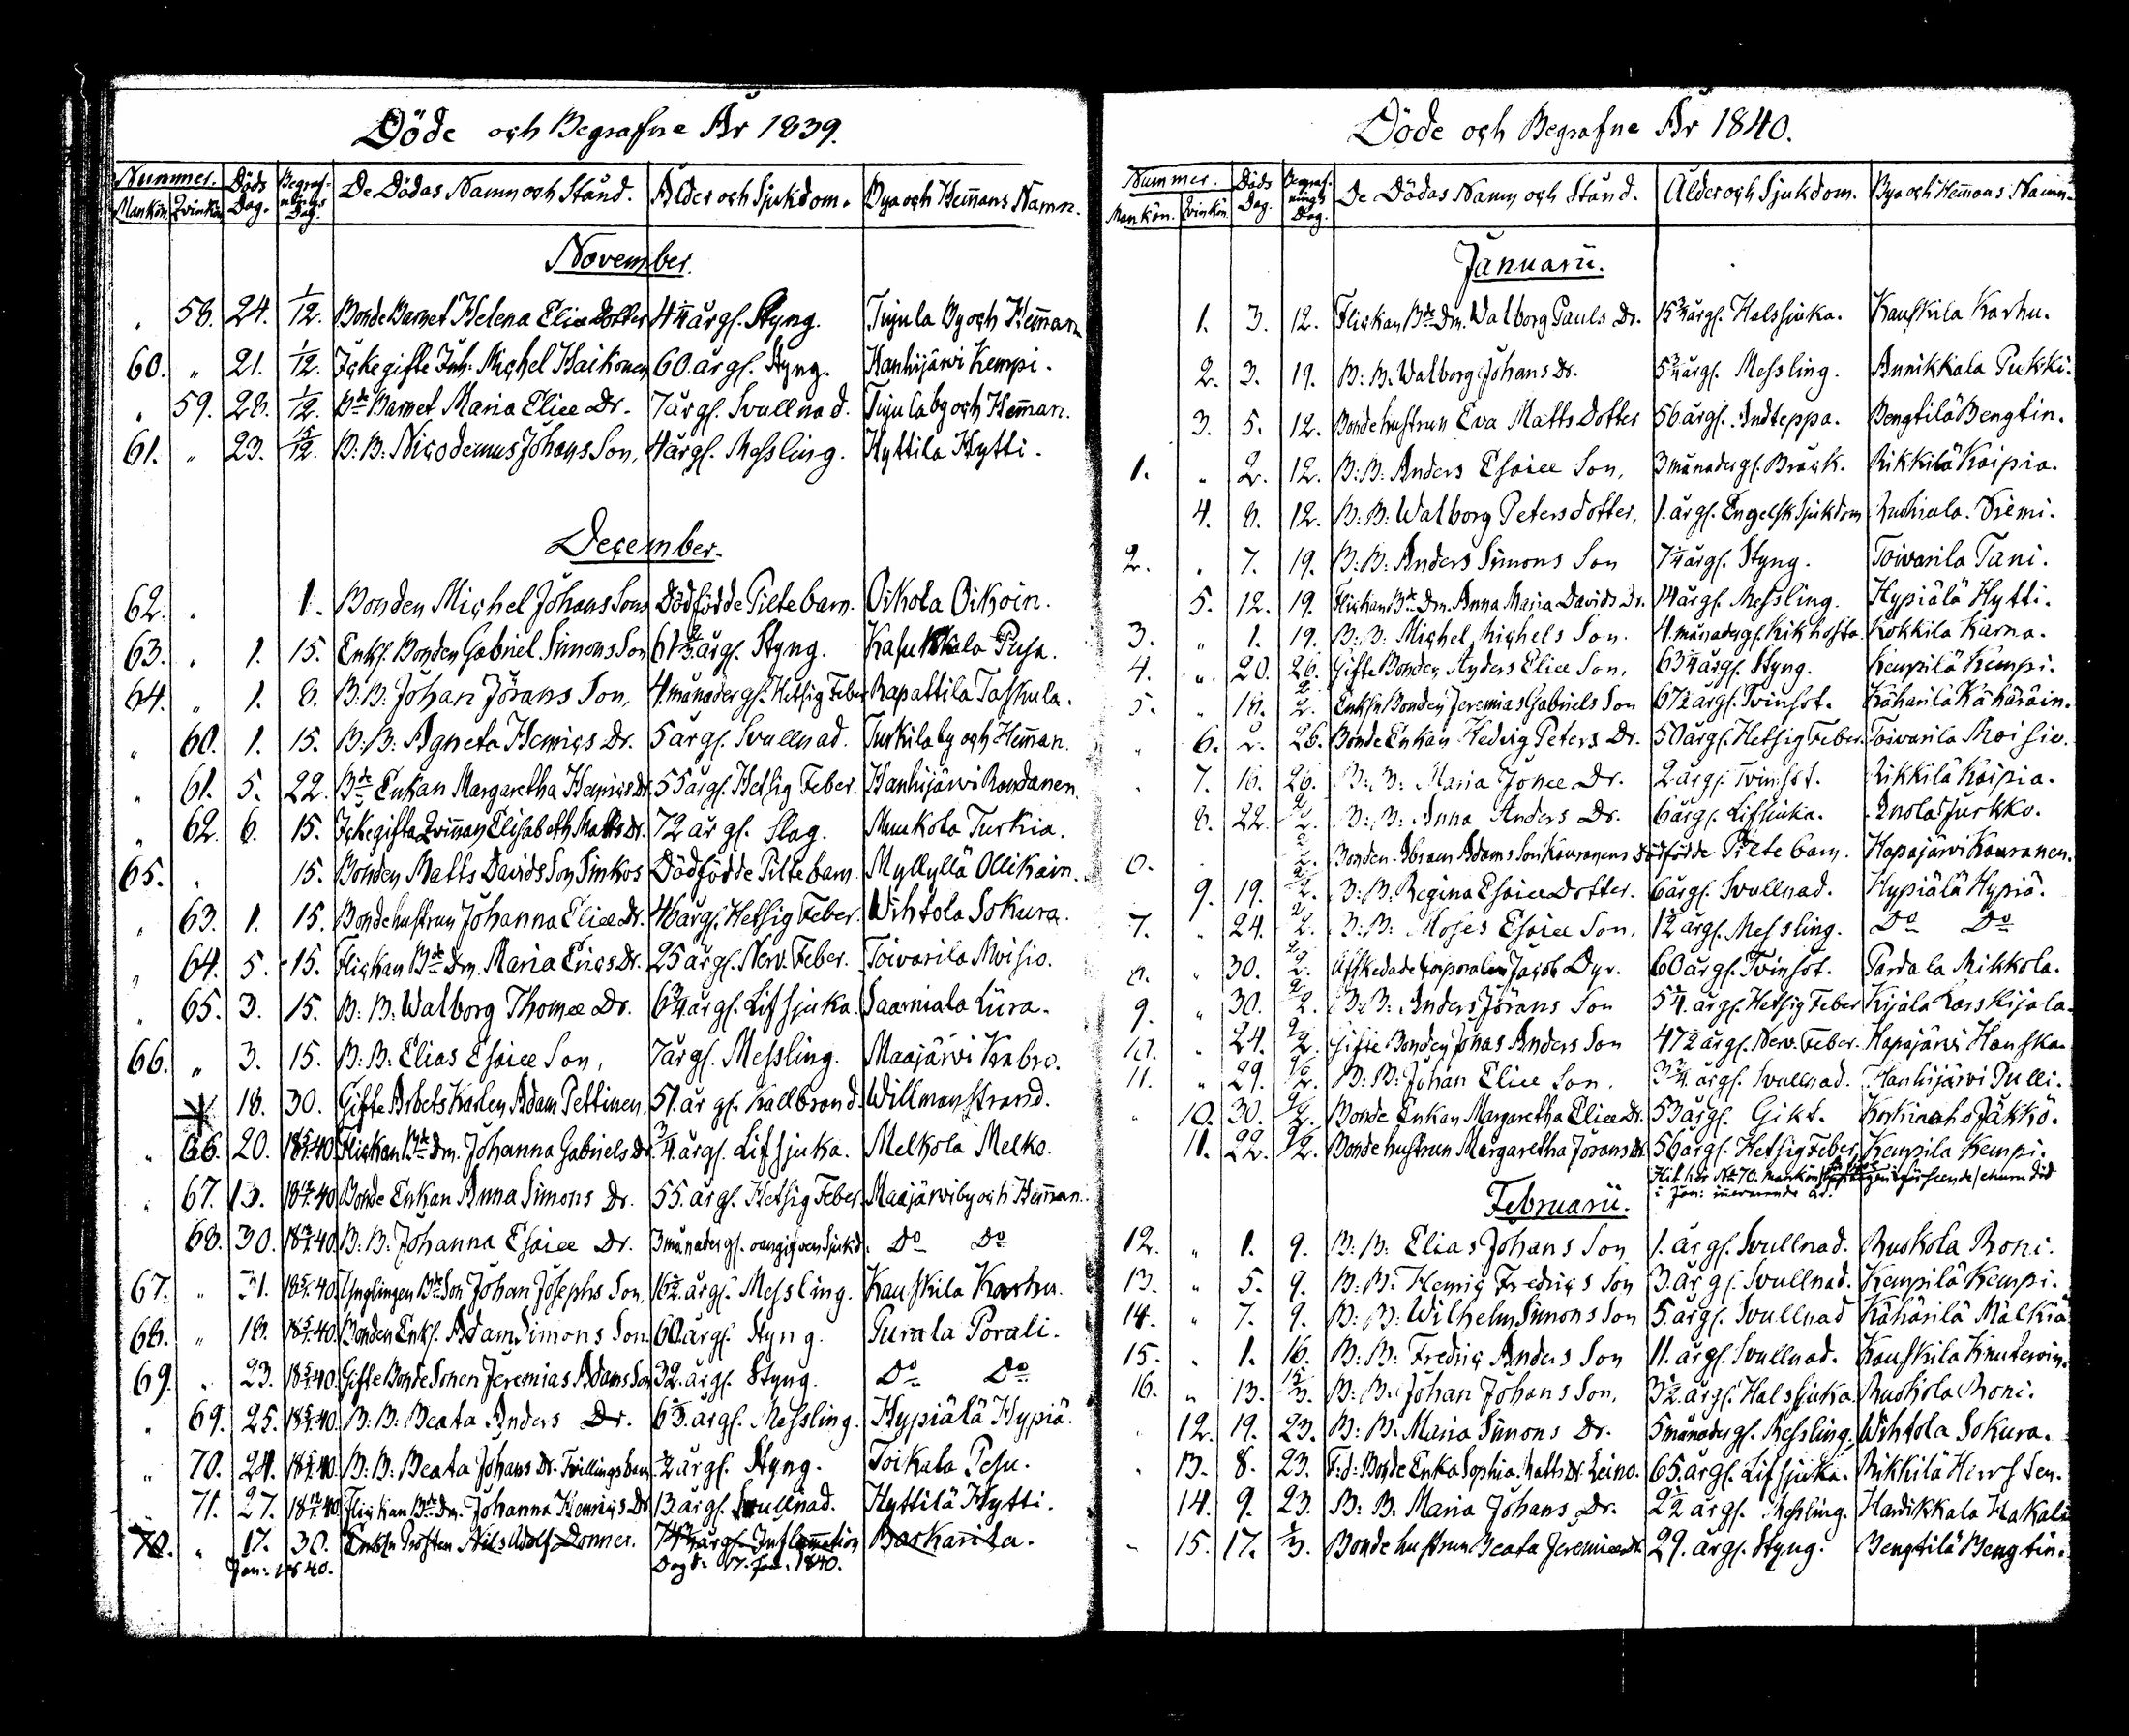 Döde och Begrafne År 1839.
Nummer. Döds Dag. Begrafnings Dag. De Dödas Namn och Stånd. Ålder och Sjukdom. Bya och Hem̄ans Namn.
Mankön. Qvinkön.
November.
" 58. 24. 1/12. Bonde Barnet Helena Eliæ Dotter 4 1/4 år gl. Styng. Tujula By och Hem̄an
60. " 21. 1/12. Icke gifte Inh. Michel Haikonen 60. år gl. Styng. Hanhijärvi Kempi.
" 59. 28. 1/12. Bde Barnet Maria Eliæ Dr. 7 år gl. Svullnad. Tujula by och Hem̄an.
61. " 23. 15/12. B: B: Nicodemus Johans Son, 4 år gl. Messling. Hyttilä Hytti.
December.
62. " 1. Bonden Michel Johans Sons Dödfödde Piltebarn. Oikola Oikoin.
63. " 1. 15. Enkl. Bonden Gabriel Simons Son 61 år gl. Styng. Pusa.
64. " 1. 8. B: B: Johan Jörans Son, 4. månader gl. Hetsig Feber Rapattila Taskula.
" 60. 1. 15. B: B: Agneta Henrics Dr. 5 år gl. Svullnad. Turkila by och Hem̄an.
" 61. 5. 22. Bde Enkan Margaretha Henrics Dr. 55 år gl. Hetsig Feber. Hanhijärvi Rondanen.
" 62. 6. 15. Icke gifta Qvin̄an Elisabeth Matts Dr. 72 år gl. Slag. Muukola Turkia.
65. " 15. Bonden Matts Davids Son Sinkos Dödfödde Piltebarn. Myllylä Ollikain.
" 63. 1. 15. Bondehustrun Johanna Eliæ Dr. 46 år gl. Hetsig Feber. Wihtola Sokura.
" 64. 5. 15. Flickan Bde Dr. Maria Erics Dr. 25 år gl. Nerv. Feber. Toivarila Moisio.
" 65. 3. 15. B: B: Walborg Thomæ Dr. 6 3/4 år gl. Lifsjuka. Saamiala Liira.
66. " 3. 15. B: B: Elias Esaiæ Son, 7 år gl. Messling. Maajärvi Krabro.
18. 30. Gifte Arbets Karlen Adam Pettinen 51. år gl. Kallbrand. Willmanstrand.
" 66. 20. 18 5/1 40. Flickan Bde Dr. Johanna Gabriels Dr. 3/4 år gl. Lifsjuka. Melkola Melko.
" 67. 13. 18 40. Bonde Enkan Anna Simons Dr. 55. år gl. Hetsig Feber Maajärvi by och Hem̄an.
68. 30. 18 40. B: B: Johanna Esaiæ Dr. 3 månader gl. oangifven Sjukd. Do Do
67. " 31. 18 5/1 40. Ynglingen Bde Son Johan Josephs Son, 16 1/2 år gl. Messling. Kauskila Karhu.
68. " 18. 18 5/1 40. Bonden Enkl. Adam Simons Son. 60 år gl. Styng. Purala Porali.
69. " 23. 18 5/1 40. Gifte Bonde Sonen Jeremias Adams Son 32. år gl. Styng. Do Do
" 69. 25. 18 5/1 40. B: B: Beata Anders Dr. 6 år gl. Messling. Hypiälä Hypiä.
" 70. 24. 18 5/1 40. B: B: Beata Johans Dr. Tvillingsbarn. 1/2 år gl. Styng. Toikala Pesu.
71. 27. 18 40. Flickan Bde Dr. Johanna Henrics Dr. 13. år gl. Svullnad. Hyttilä Hytti.
70. " 17. 30. Enkln Prosten Nils Adolf Donner. år gl. Inflam̄ation Barkarila.
Jan: 1840. Dog d. 17. Jan. 1840.
Döde och Begrafne År 1840.
Nummer. Döds Dag. Begrafnings Dag. De Dödas Namn och Stånd. Ålder och Sjukdom. Bya och Hem̄ans Namn.
Mankön. Qvinkön.
Januarii.
1. 3. 12. Flickan Bde Dr. Walborg Pauls Dr. 15 3/4 år gl. Halssjuka. Kauskila Karhu.
2. 3. 19. B: B. Walborg Johans Dr. 5 3/4 år gl. Messling. Annikkala Pukki.
3. 5. 12. Bondehustrun Eva Matts Dotter 56 år gl. Andteppa. Bengtilä Bengtin.
1. " 2. 12. B: B: Anders Esaiæ Son, 3 månader gl. Bråck. Rikkilä Kaipia.
4. 8. 12. B: B: Walborg Peters dotter, 1. år gl. Engelsk Sjukdom Niemi.
2. " 7. 19. B: B: Anders Simons Son 7 1/4 år gl. Styng. Toivarila Tani.
5. 12. 19. Flickan Bde Dr. Anna Maria Davids Dr. 14 år gl. Messling. Hypiälä Hytti.
3. " 1. 19. B: B: Michel Michels Son. 4. månader gl. Kikhosta. Kokkila Kärna.
4. " 20. 26. Gifte Bonden Anders Eliæ Son, 63 1/4 år gl. Styng. Kempilä Kempi.
5. " 18. 2/2. Enkln Bonden Jeremias Gabriels Son 67 1/2 år gl. Tvinsot. Kähärilä Kähäräin.
" 6. 2. 26. Bonde Enkan Hedvig Peters Dr. 50 år gl. Hetsig Feber. Toivarila Moisio.
" 7. 16. 26. B: B: Maria Jonæ Dr. 2 år gl. Tvinsot. Rikkilä Kaipia.
8. 22. 2/2. B: B: Anna Anders Dr. 6 år gl. Lifsjuka. Jurkko.
6. 2/2. Bonden Abram Adams Son Kauranens Dödfödde Piltebarn. Hapajärvi Kauranen.
9. 19. 2/2. B: B: Regina Esaiæ Dotter. 6 år gl. Svullnad. Hypiälä Hypiä.
7. " 24. 2/2. B: B: Moses Esaiæ Son, 1 1/2 år gl. Messling. Do Do
8. " 30. 2/2. Afskedade Corporalen Jacob Dyr. 60 år gl. Tvinsot. Pardala Mikkola.
9. " 30. 2/2. B: B: Anders Jörans Son 5 1/4. år gl. Hetsig Feber Kijala
10. " 24. 2/2. Gifte Bonden Jonas Anders Son 47 1/2 år gl. Nerv. Feber. Hapajärvi Hanska.
11. " 29. B: B: Johan Eliæ Son. 3 3/4. år gl. Svullnad. Hanhijärvi Pulli.
" 10. 30. Bonde Enkan Margaretha Eliæ Dr. 53 år gl. Gikt. Korkiaaho Jäkkö.
11. 22. Bondehustrun Margaretha Jörans Dr. 56 år gl. Hetsig Feber Kempila Kempi.
Hit hör No 70. mankön
i Jan: innevarande år.
Februarii.
12. " 1. 9. B: B: Elias Johans Son 1. år gl. Svullnad. Ruokola Roni.
13. " 5. 9. B: B: Henric Fredrics Son 3. år gl. Svullnad. Kempilä Kempi.
14. " 7. 9. B: B: Wilhelm Simons Son 5. år gl. Svullnad Kähärilä Mälkiä
15. " 1. 16. B: B: Fredric Anders Son 11. år gl. Svullnad. Kauskila
16. " 13. B: B: Johan Johans Son, 3 1/2 år gl. Halssjuka. Ruokola Roni.
" 12. 19. 23. B: B: Maria Simons Dr. 5 månader gl. Messling. Wihtola Sokura.
" 13. 8. 23. F: d: Bonde Enka Sophia Matts Dr. Leino. 65. år gl. Lifsjuka. Rikkilä
14. 9. 23. B: B. Maria Johans Dr. 2 1/2 år gl. Messling. Hardikkala Hakali
" 15. 17. 1/3. Bondehustrun Beata Jeremiæ Dr. 29. år gl. Styng. Bengtilä Bengtin.